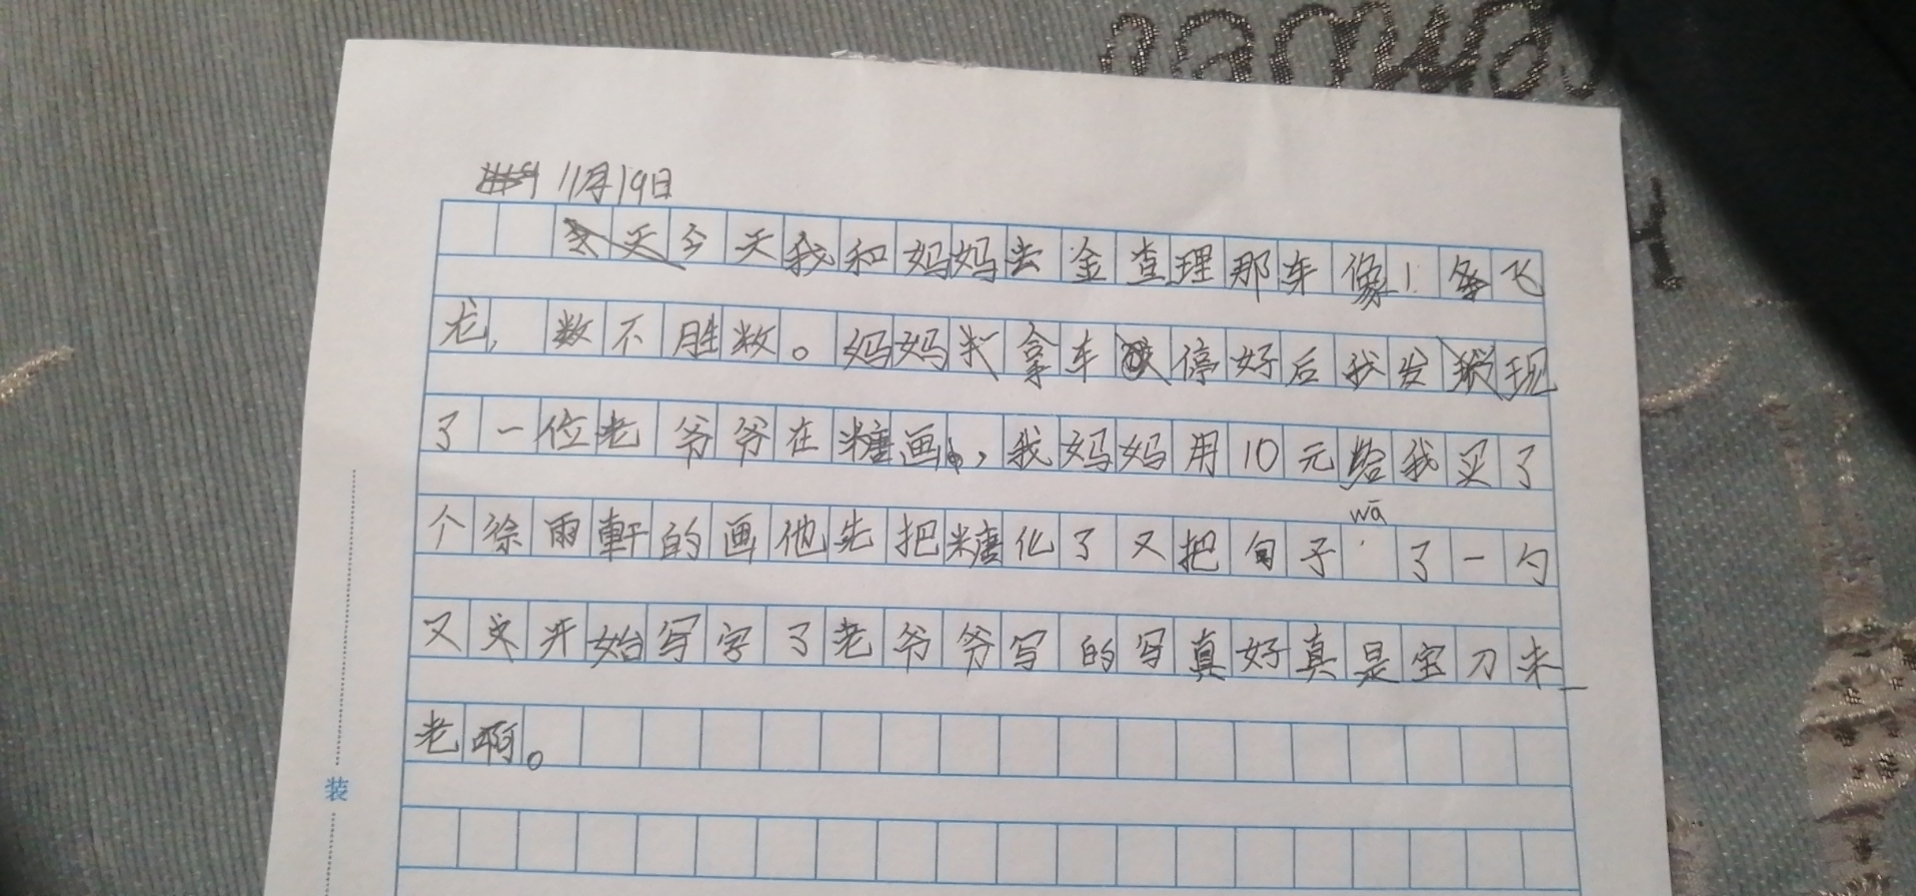 11月19日
今天我和妈妈去金查理那车像1条飞
龙,数不胜数。妈妈拿车停好后我发现
了一位老爷爷在糖画,我妈妈用10元给我买了
wā
个徐雨軒的画他先把糖化了又把勺子了一勺
又开始写字了老爷爷写的写真好真是宝刀未
老啊。
装